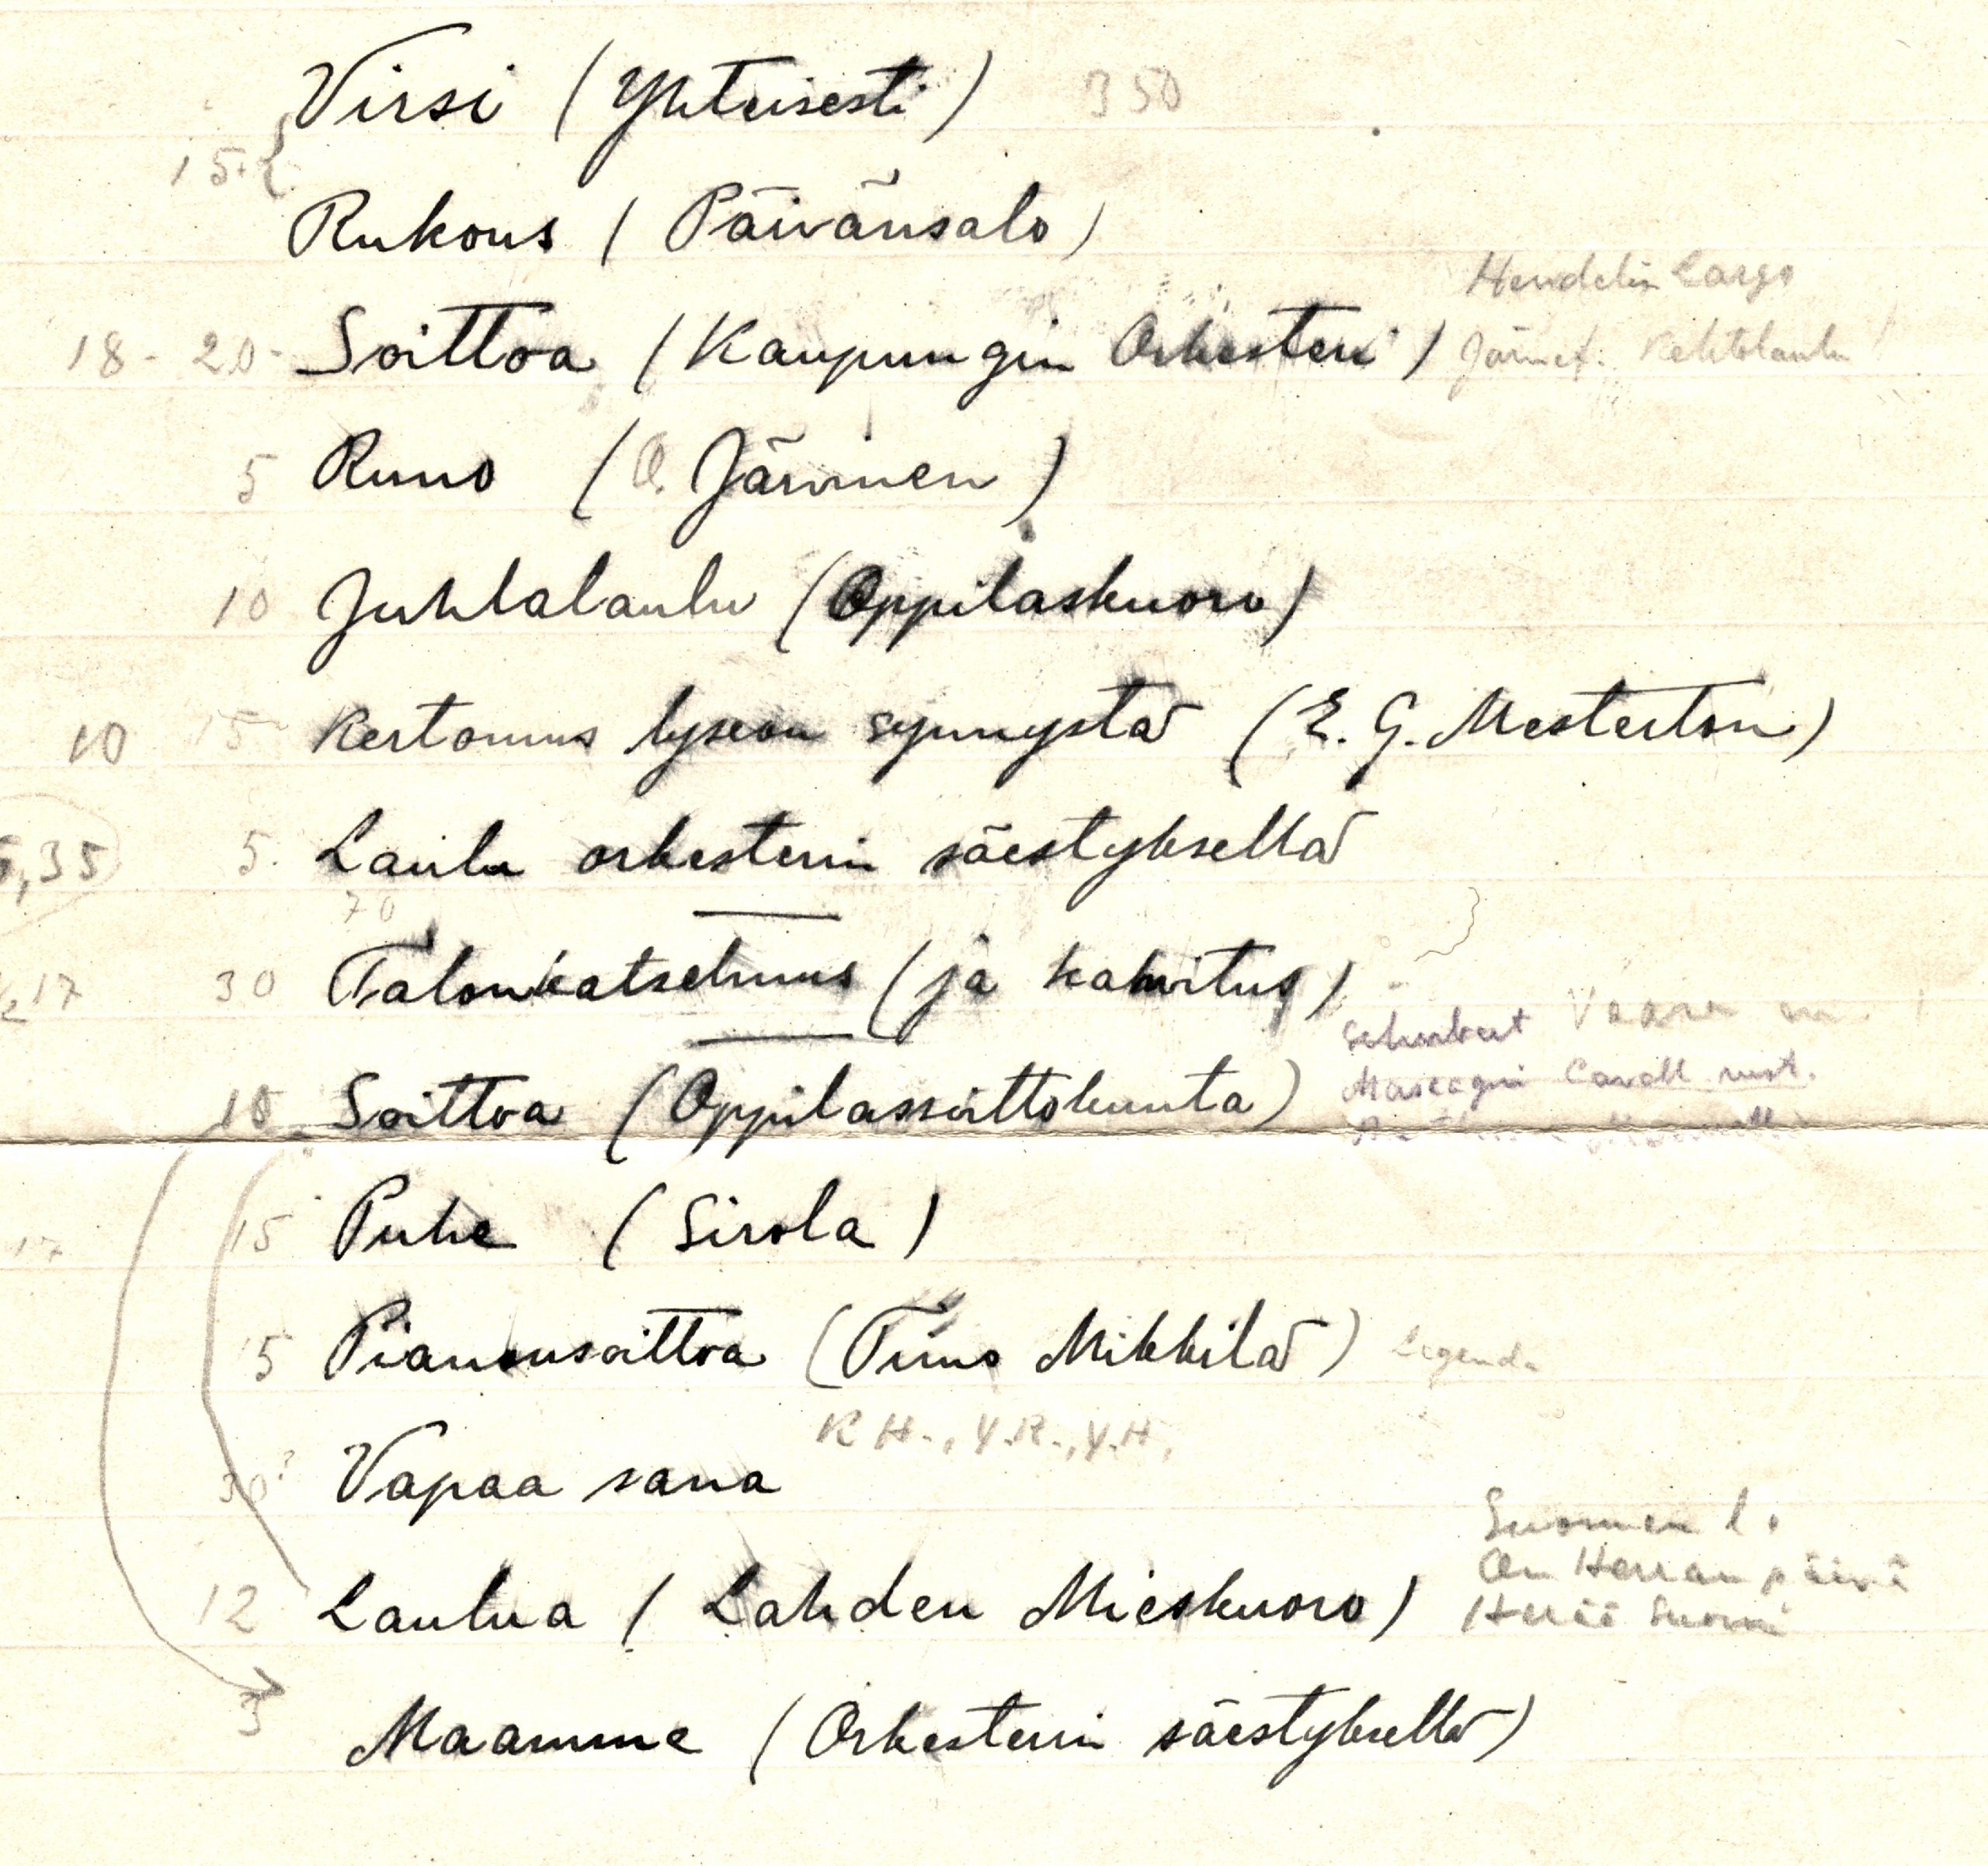 Virsi (Yhteisesti) 350
15.
Rukous (Päivänsalo)
Hendelin Largo
18-20- Soittoa (Kaupungin Orkesteri) Järnef. Kehtolaulu
5 Runo (O. Järvinen)
10 Juhlalaulu (Oppilaskuoro)
10 15 Kertomus lyseon synnystä (E. G. Mesterton)
,35 5. Laulu orkesterin säestyksellä
70
17 30 Talonkatselmus (ja kahvitus)
Schubert
Mascagni Cavall. rust.
10 Soittoa (Oppilassoittokunta)
17 15 Puhe (Sirola)
5 Pianonsoittoa (Timo Mikkilä) Legenda
K H., Y.R., Y.H.
30? Vapaa sana
Suomen l.
On Herran päivä
12 Laulua (Lahden Mieskuoro) Herää Suomi
3 Maamme (Orkesterin säestyksellä)